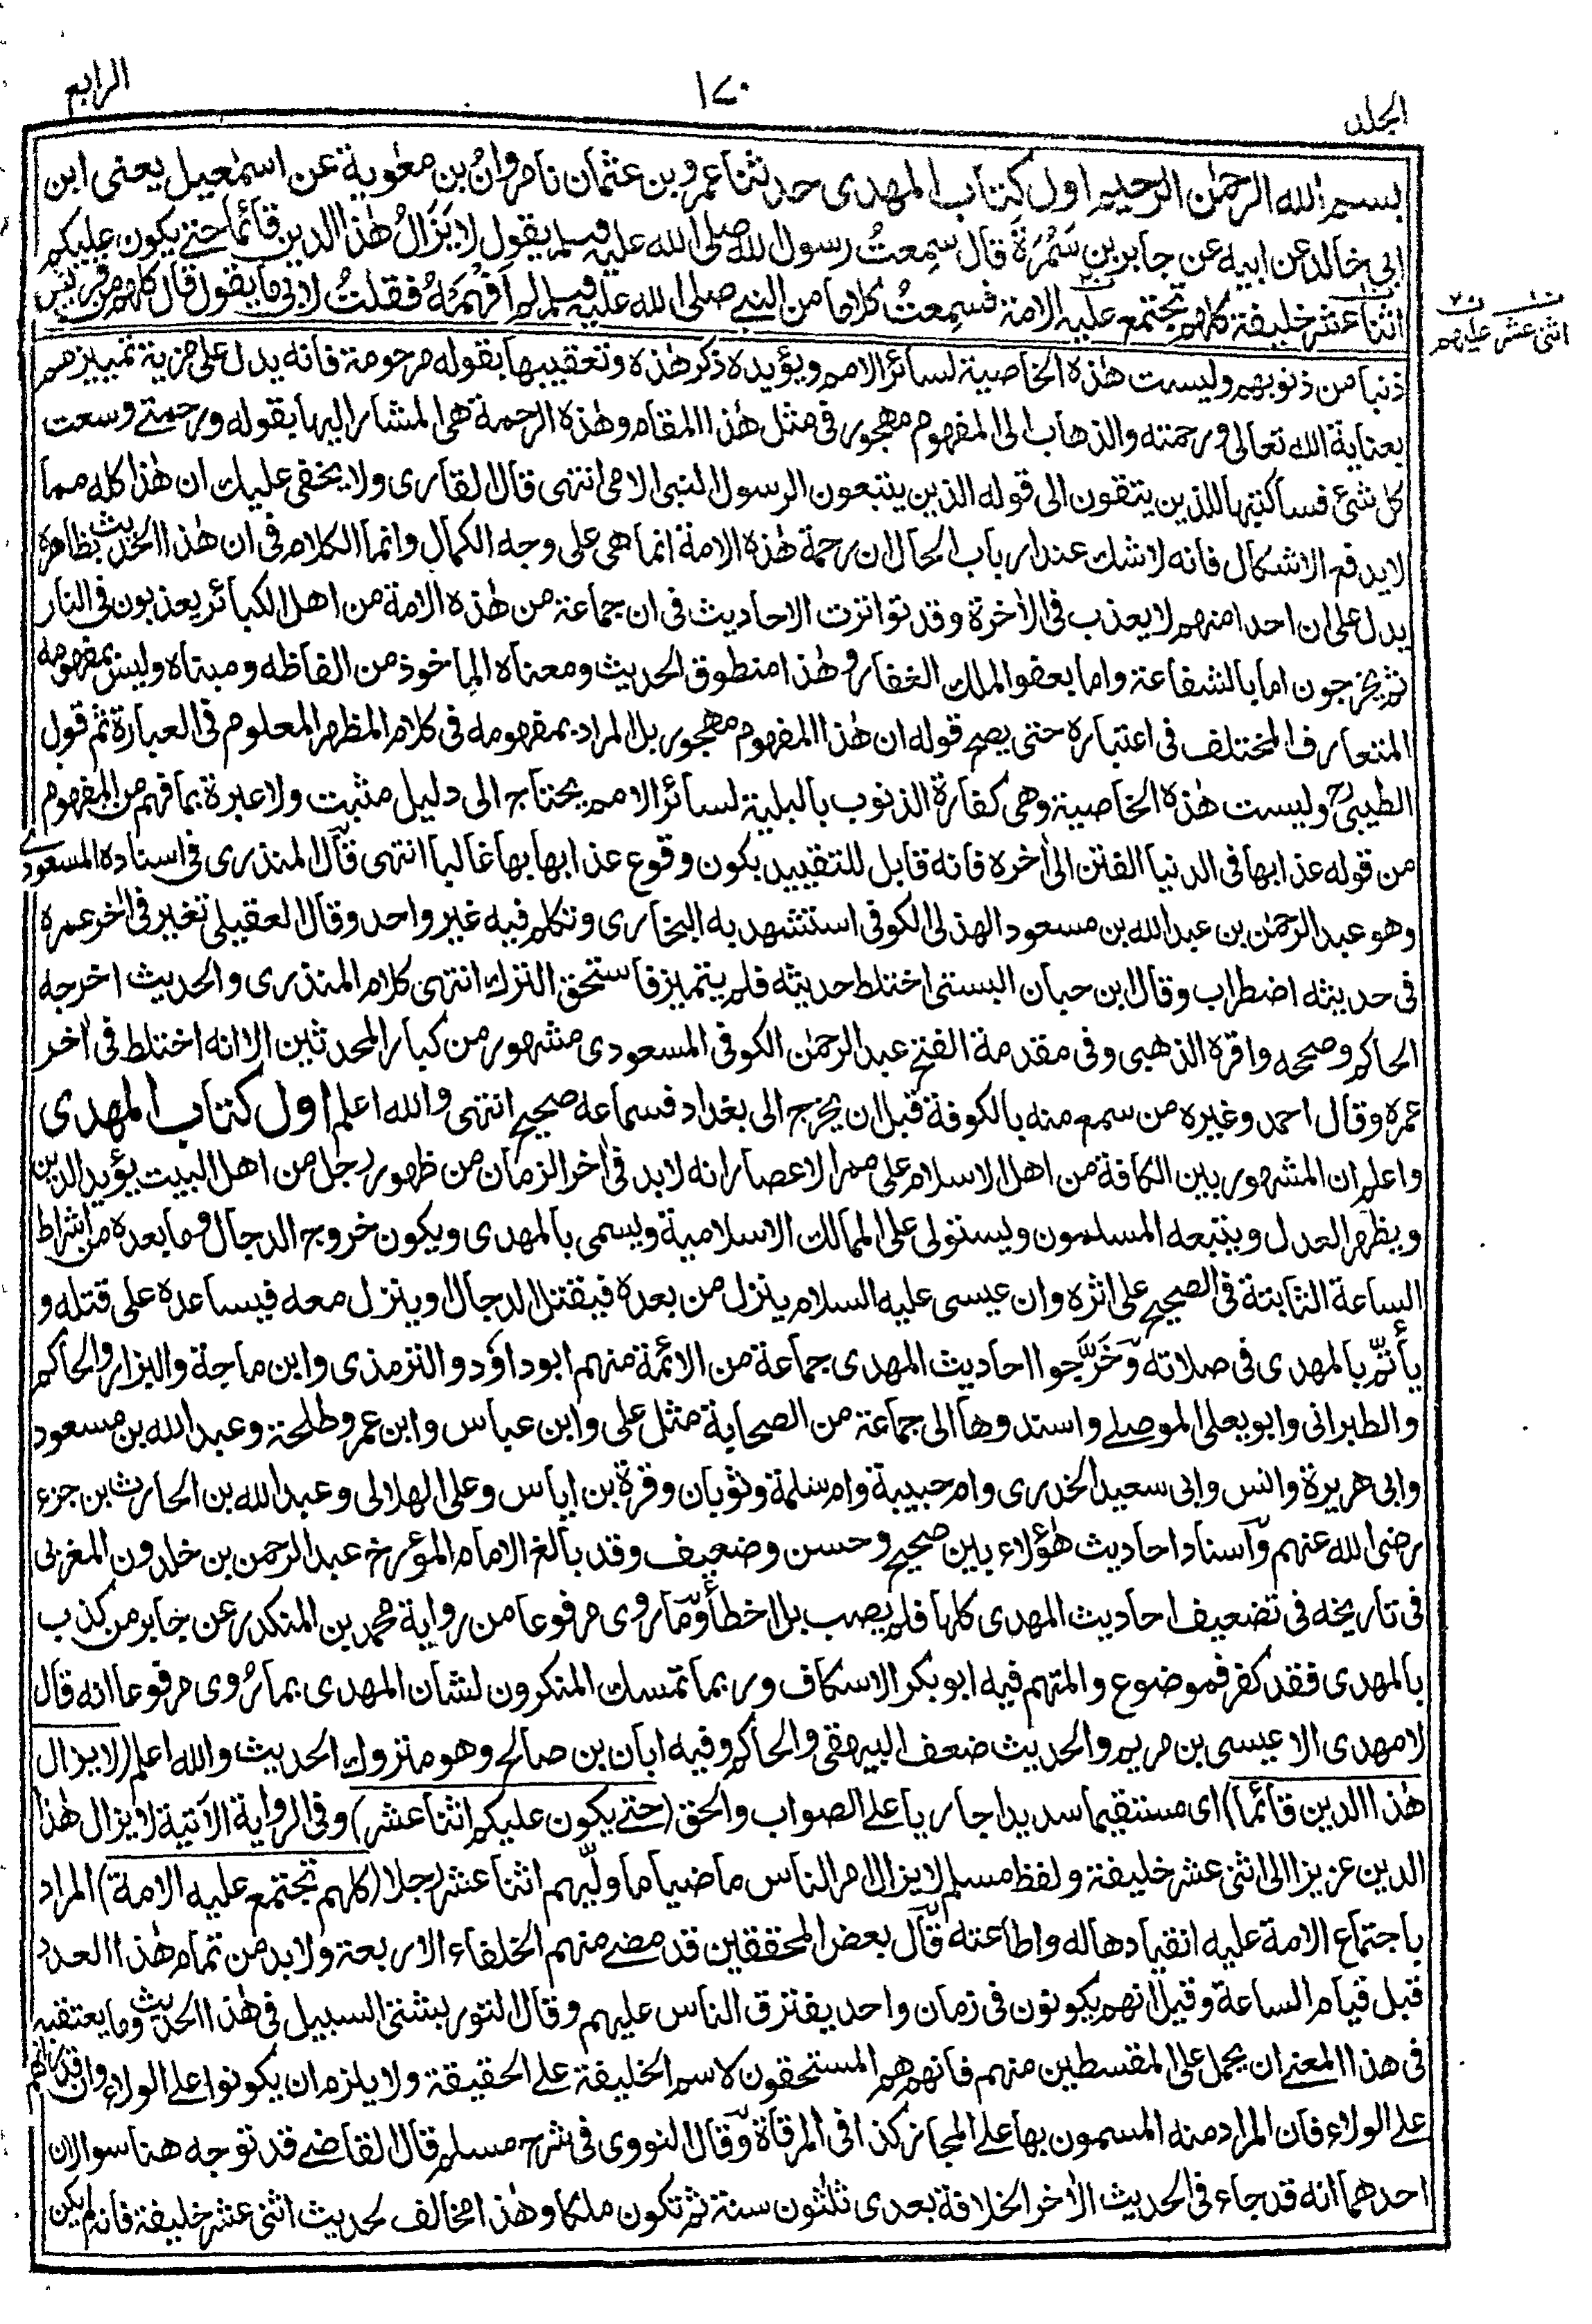 المجلد
١٧٠
الرابع
بسم الله الرحمٰن الرحيم اول كِتاب المهدى حدثنا عمرو بن عثمان نا مروانُ بن معٰوية عن اسمٰعيل يعنى ابن
ابى خالد عن ابيه عن جابر بن سَمُرَةَ قال سمِعتُ رسول الله صلى الله عليه وسلم يقول لا يَزَالُ هٰذا الدين قائما حتے يكون عليكم
اثنا عشر خليفة كلهم تجتمع عليه الامة فسمِعتُ كلاما من النبے صلى الله عليه وسلم لم اَفْهَمْهُ فقلتُ لابى ما يقول قال كلهم من قريش
اثنى عشر عليهم
ذنبا من ذنوبهم وليست هٰذه الخاصية لسائر الامم ويؤيده ذكر هٰذه وتعقيبها بقوله مرحومة فانه يدل على مزية تمييزهم
بعناية الله تعالى ورحمته والذهاب الى المفهوم مهجور فى مثل هٰذا المقام وهٰذه الرحمة هى المشار اليها بقوله ورحمتے وسعت
كل شئ فساكتبها للذين يتقون الى قوله الذين يتبعون الرسول النبى الامى انتهى قال القارى ولا يخفى عليك ان هٰذا كله مما
لا يدفع الاشكال فانه لا شك عند ارباب الحال ان رحمة هٰذه الامة انما هى على وجه الكمال وانما الكلام فى ان هٰذا الحديث بظاهره
يدل على ان احدا منهم لا يعذب فى الاٰخرة وقد تواترت الاحاديث فى ان جماعة من هٰذه الامة من اهل الكبائر يعذبون فى النار
ثم يخرجون اما بالشفاعة واما بعفو الملك الغفار وهٰذا منطوق الحديث ومعناه الماخوذ من الفاظه ومبناه وليس بمفهومه
المتعارف المختلف فى اعتباره حتى يصح قوله ان هٰذا المفهوم مهجور بل المراد بمفهومه فى كلام المظهر المعلوم فى العبارة ثم قول
الطيبىؒ وليست هٰذه الخاصية وهى كفارة الذنوب بالبلية لسائر الامم يحتاج الى دليل مثبت ولا عبرة بما فهم من المفهوم
من قوله عذابها فى الدنيا الفتن الى اٰخره فانه قابل للتقييد بكون وقوع عذابها بها غالبا انتهى قال المنذرى فى اسناده المسعودى
وهو عبد الرحمٰن بن عبد الله بن مسعود الهذلى الكوفى استشهد به البخارى وتكلم فيه غير واحد وقال العقيلى تغير فى اٰخر عمره
فى حديثه اضطراب وقال ابن حبان البستى اختلط حديثه فلم يتميز فاستحق الترك انتهى كلام المنذرى والحديث اخرجه
الحاكم وصححه واقره الذهبى وفى مقدمة الفتح عبد الرحمٰن الكوفى المسعودى مشهور من كبار المحدثين الا انه اختلط فى اٰخر
عمره وقال احمد وغيره من سمع منه بالكوفة قبل ان يخرج الى بغداد فسماعه صحيح انتهى والله اعلم اول كتاب المهدى
واعلم ان المشهور بين الكافة من اهل الاسلام على ممر الاعصار انه لا بد فى اٰخر الزمان من ظهور رجل من اهل البيت يؤيد الدين
ويظهر العدل ويتبعه المسلمون ويستولى على الممالك الاسلامية ويسمى بالمهدى ويكون خروج الدجال وما بعده من اشراط
الساعة الثابتة فى الصحيح على اثره وان عيسى عليه السلام ينزل من بعده فيقتل الدجال او ينزل معه فيساعده على قتله و
يأتمّ بالمهدى فى صلاته وخَرَّجوا احاديث المهدى جماعة من الائمة منهم ابو داؤد والترمذى وابن ماجة والبزار والحاكم
والطبرانى وابو يعلى الموصلے واسندوها الى جماعة من الصحابة مثل على وابن عباس وابن عمر وطلحة وعبد الله بن مسعود
وابى هريرة وانس وابى سعيد الخدرى وام حبيبة وام سلمة وثوبان وقرة بن اياس وعلى الهلالى وعبد الله بن الحارث بن جزء
رضى الله عنهم واسناد احاديث هٰؤلاء بين صحيح وحسن وضعيف وقد بالغ الامام المؤرخ عبد الرحمن بن خلدون المغربى
فى تاريخه فى تضعيف احاديث المهدى كلها فلم يصب بل اخطأ وما روى مرفوعا من رواية محمد بن المنكدر عن جابر من كذب
بالمهدى فقد كفر فموضوع والمتهم فيه ابو بكر الاسكاف وربما تمسك المنكرون لشان المهدى بما رُوى مرفوعا انه قال
لا مهدى الا عيسى بن مريم والحديث ضعف البيهقى والحاكم وفيه ابان بن صالح وهو متروك الحديث والله اعلم (لا يزال
هٰذا الدين قائما) اى مستقيما سديدا جاريا على الصواب والحق (حتے يكون عليكم اثنا عشر) وفى الرواية الآتية لا يزال هٰذا
الدين عزيزا الى اثنى عشر خليفة ولفظ مسلم لا يزال امر الناس ماضيا ما وليهم اثنا عشر رجلا (كلهم تجتمع عليه الامة) المراد
باجتماع الامة عليه انقيادها له واطاعته قال بعض المحققين قد مضے منهم الخلفاء الاربعة ولا بد من تمام هٰذا العدد
قبل قيام الساعة وقيل انهم يكونون فى زمان واحد يفترق الناس عليهم وقال التوربشتى السبيل فى هٰذا الحديث وما يعتقبه
فى هذا المعنے ان يحمل على المقسطين منهم فانهم هم المستحقون لاسم الخليفة على الحقيقة ولا يلزم ان يكونوا على الولاء وان قدر انهم
على الولاء فان المراد منه المسمون بها على المجاز كذا فى المرقاة وقال النووى فى شرح مسلم قال القاضے قد توجه هنا سوالان
احدهما انه قد جاء فى الحديث الاٰخر الخلافة بعدى ثلٰثون سنة ثم تكون ملكا وهٰذا مخالف لحديث اثنى عشر خليفة فانه لم يكن